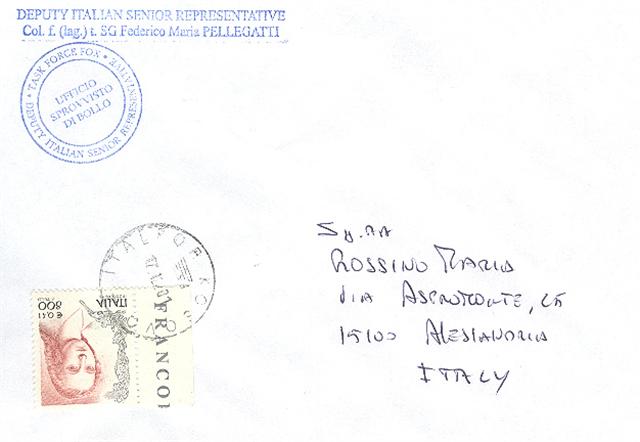 DEPUTY ITALIAN SENIOR REPRESENTATIVE
Col. f. (lag.) t. SG Federico Maria PELLEGATTI
• TASK FORCE FOX •
DEPUTY ITALIAN SENIOR REPRESENTATIVE
UFFICIO
SPROVVISTO
DI BOLLO
ITALFOR KOS
ITALIA
800
€ 0,41
FRANCO
ROSSINO MARIA
VIA ASPROMONTE, 25
15100 ALESSANDRIA
ITALY